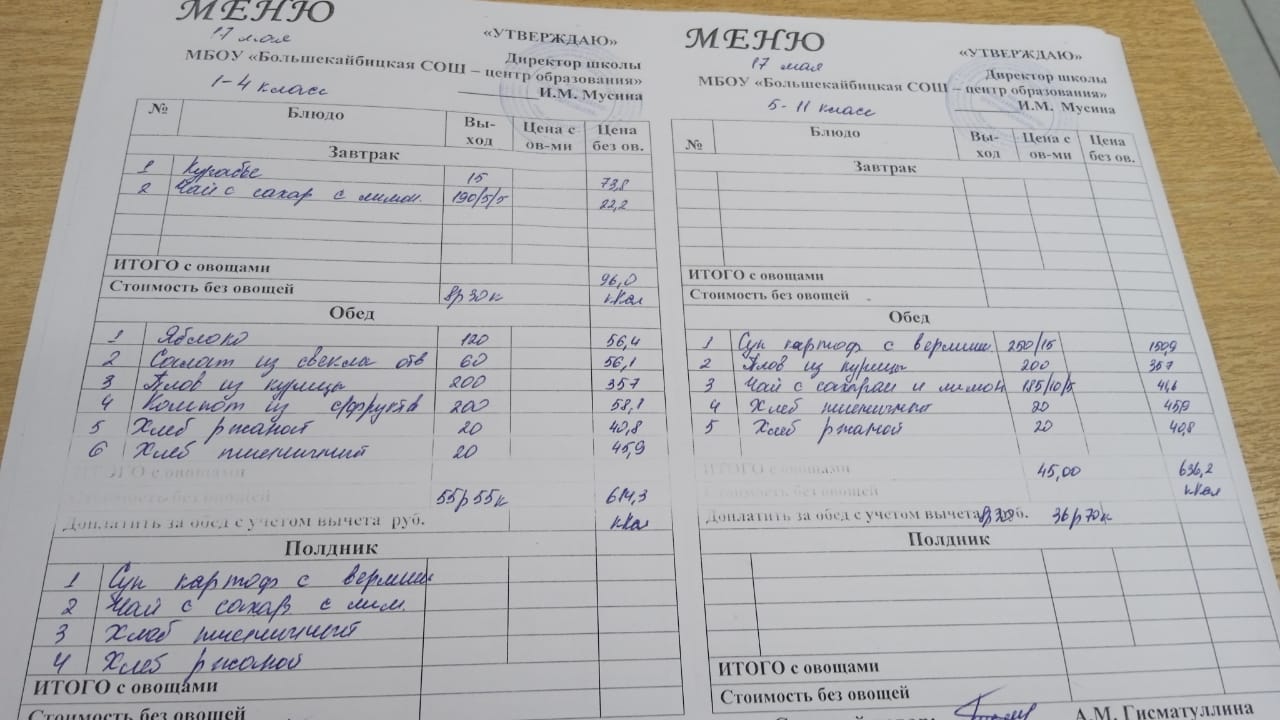 МЕНЮ
17 мая
«УТВЕРЖДАЮ»
Директор школы
МБОУ «Большекайбицкая СОШ – центр образования»
1-4 класс
И.М. Мусина
№ Блюдо Вы-ход Цена с ов-ми Цена без ов.
Завтрак
1 Курабье 15 73,8
2 Чай с сахар с лимон. 190/5/5 22,2
ИТОГО с овощами 96,0
Стоимость без овощей 8р 30к кКал
Обед
1 Яблоко 120 56,4
2 Салат из свекла отв 60 56,1
3 Плов из курицы 200 357
4 Компот из сфруктв 200 58,1
5 Хлеб ржаной 20 40,8
6 Хлеб пшеничный 20 45,9
ИТОГО с овощами
Стоимость без овощей 55р 55к 614,3
Доплатить за обед с учетом вычета руб. кКал
Полдник
1 Суп картоф с вермиш
2 Чай с сахар с лим.
3 Хлеб пшеничный
4 Хлеб ржаной
ИТОГО с овощами
Стоимость без овощей
МЕНЮ
17 мая
«УТВЕРЖДАЮ»
Директор школы
МБОУ «Большекайбицкая СОШ – центр образования»
5-11 класс
И.М. Мусина
№ Блюдо Вы-ход Цена с ов-ми Цена без ов.
Завтрак
ИТОГО с овощами
Стоимость без овощей
Обед
1 Суп картоф с вермиш. 250/15 150,9
2 Плов из курицы 200 357
3 Чай с сахарам и лимон 185/10/5 41,6
4 Хлеб пшеничный 20 45,9
5 Хлеб ржаной 20 40,8
ИТОГО с овощами 45,00 636,2
Стоимость без овощей кКал
Доплатить за обед с учетом вычета 8р30 руб. 36р70к
Полдник
ИТОГО с овощами
Стоимость без овощей
А.М. Гисматуллина